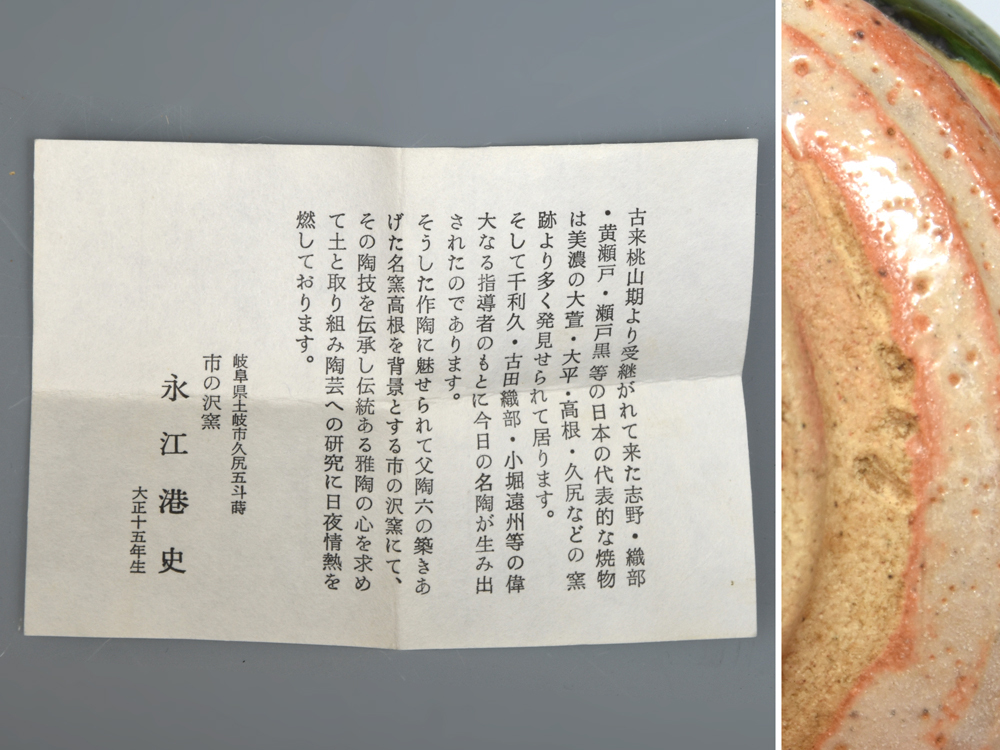 古来桃山期より受継がれて来た志野・織部
・黄瀬戸・瀬戸黒等の日本の代表的な焼物
は美濃の大萱・大平・高根・久尻などの窯
跡より多く発見せられて居ります。
そして千利久・古田織部・小堀遠州等の偉
大なる指導者のもとに今日の名陶が生み出
されたのであります。
そうした作陶に魅せられて父陶六の築きあ
げた名窯高根を背景とする市の沢窯にて、
その陶技を伝承し伝統ある雅陶の心を求め
て土と取り組み陶芸への研究に日夜情熱を
燃しております。
岐阜県土岐市久尻五斗蒔
市の沢窯
永江港史
大正十五年生